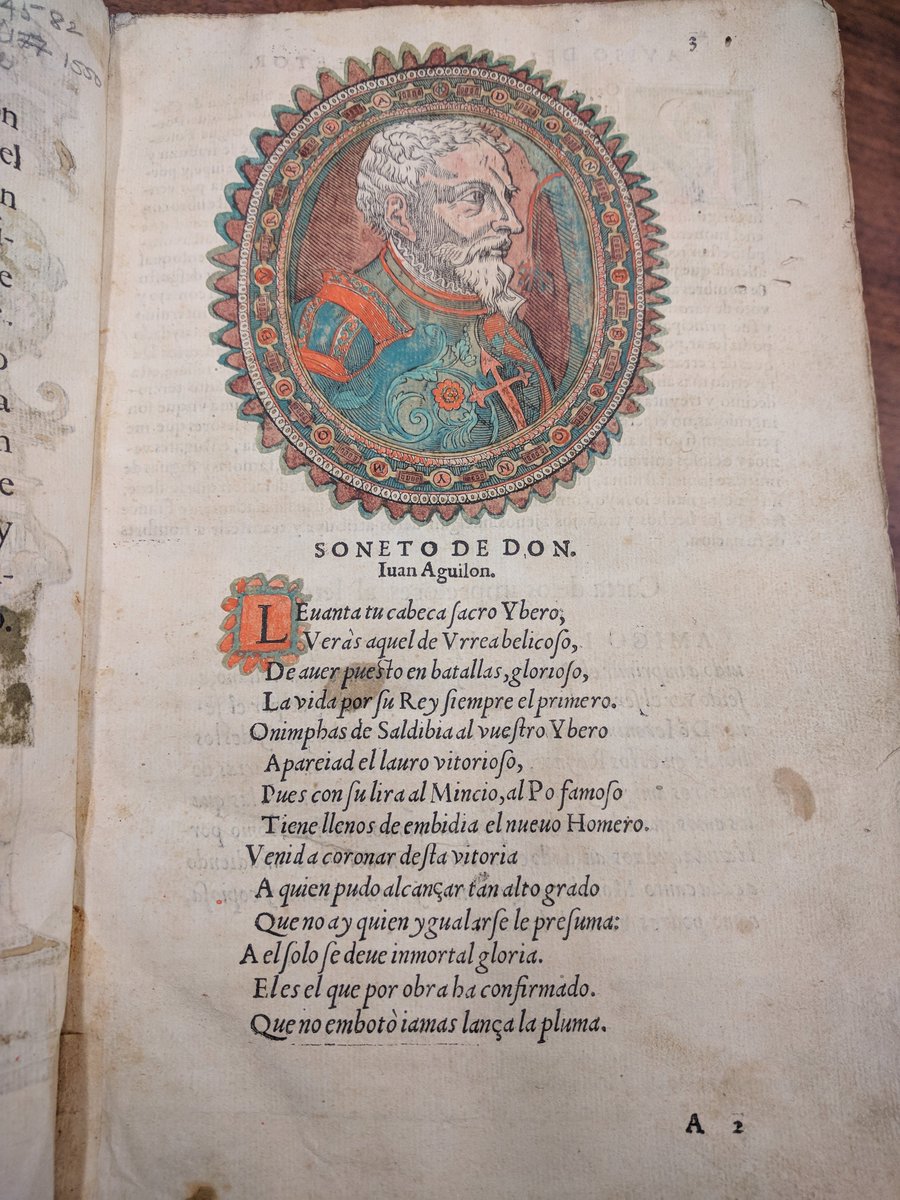 45-82
1000
3
SONETO DE DON.
Iuan Aguilon.
LEuanta tu cabeca sacro Ybero,
Veràs aquel de Vrrea belicoso,
De auer puesto en batallas, glorioso,
La vida por su Rey siempre el primero.
O nimphas de Saldibia al vuestro Ybero
Apareiad el lauro vitorioso,
Pues con su lira al Mincio, al Po famoso
Tiene llenos de embidia el nueuo Homero.
Venid a coronar desta vitoria
A quien pudo alcançar tan alto grado
Que no ay quien ygualarse le presuma:
A el solo se deue inmortal gloria.
El es el que por obra ha confirmado.
Que no embotò iamas lança la pluma.
A 2